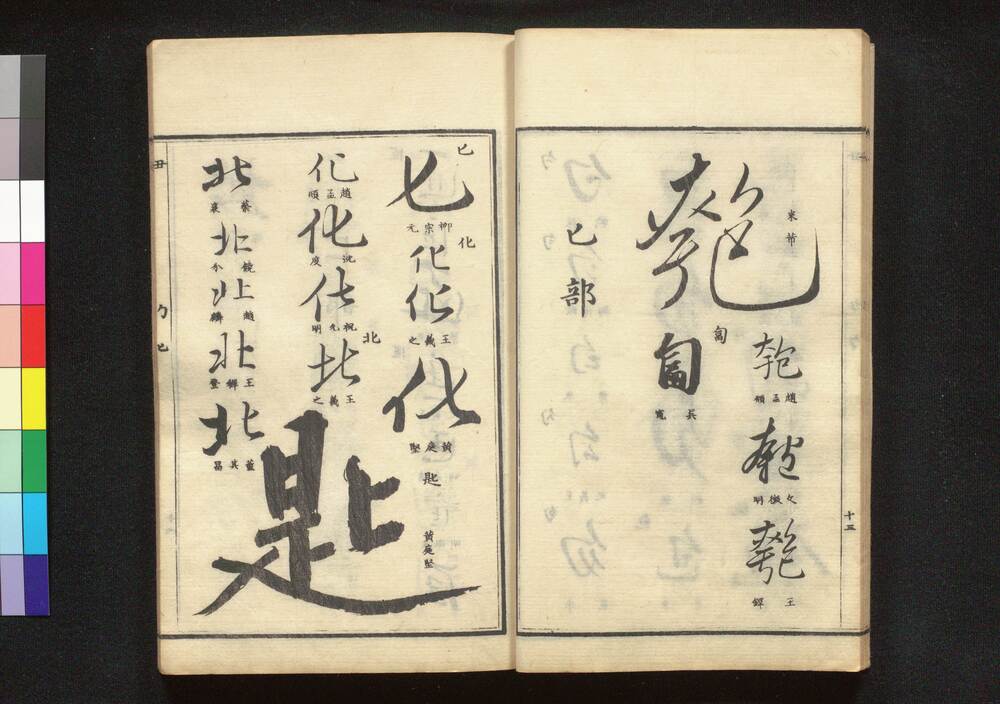 匏
米芾
匏
趙孟頫
匏
文徵明
匏
王鐸
十三
匐
匐
匕部
匕
匕
柳宗元
化
化
化
王羲之
化
黃庭堅
匙
黃庭堅
匙
化
趙孟頫
化
沈度
化
祝允明
北
北
王羲之
北
蔡襄
北
北
北
北
董其昌
丑
勹匕